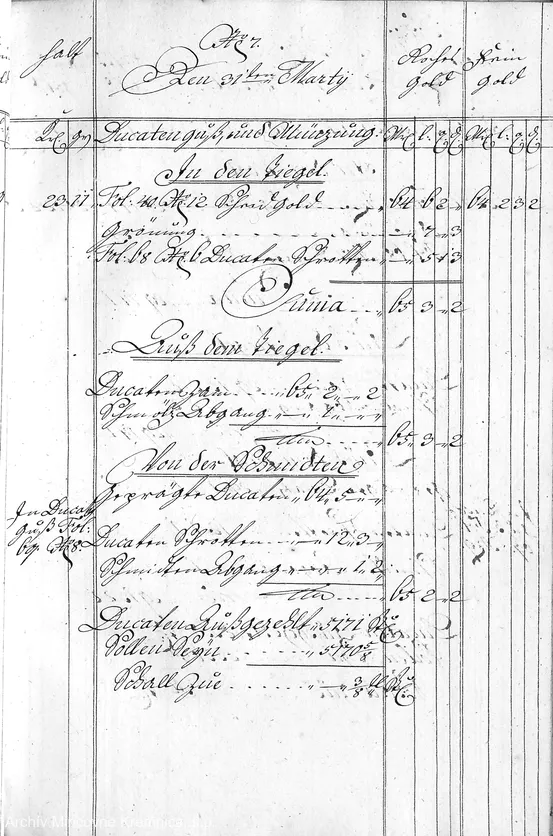 No 7.
halt Den 31ten Marty Roches Gold Fein Gold
Kr gr Ducaten guß, und Münzung. M l. q d. M l. q d.
In den Tiegel.
23 11 Fol: 40. No 12 Scheid Gold 64 6 2 64 2 3 2
Grönung 7 3
Fol: 68 No 6 Ducaten Schrotten 5 1 3
Suma 65 3 2
Auß dem Tiegel.
Ducaten Zain 65 2 2
Schmölz Abgang 1
65 3 2
Von der Schmidten
Geprägte Ducaten 64 5
In Ducat
guß Fol:
69. No 8.
Ducaten Schrotten 12 3
Schmidten Abgang 1 2
65 2 2
Ducaten Außgezehlt 5171 St
Sollen Seyn 5170 5/8
Schall Zue 3/8 St
Archiv Mincovne Kremnica